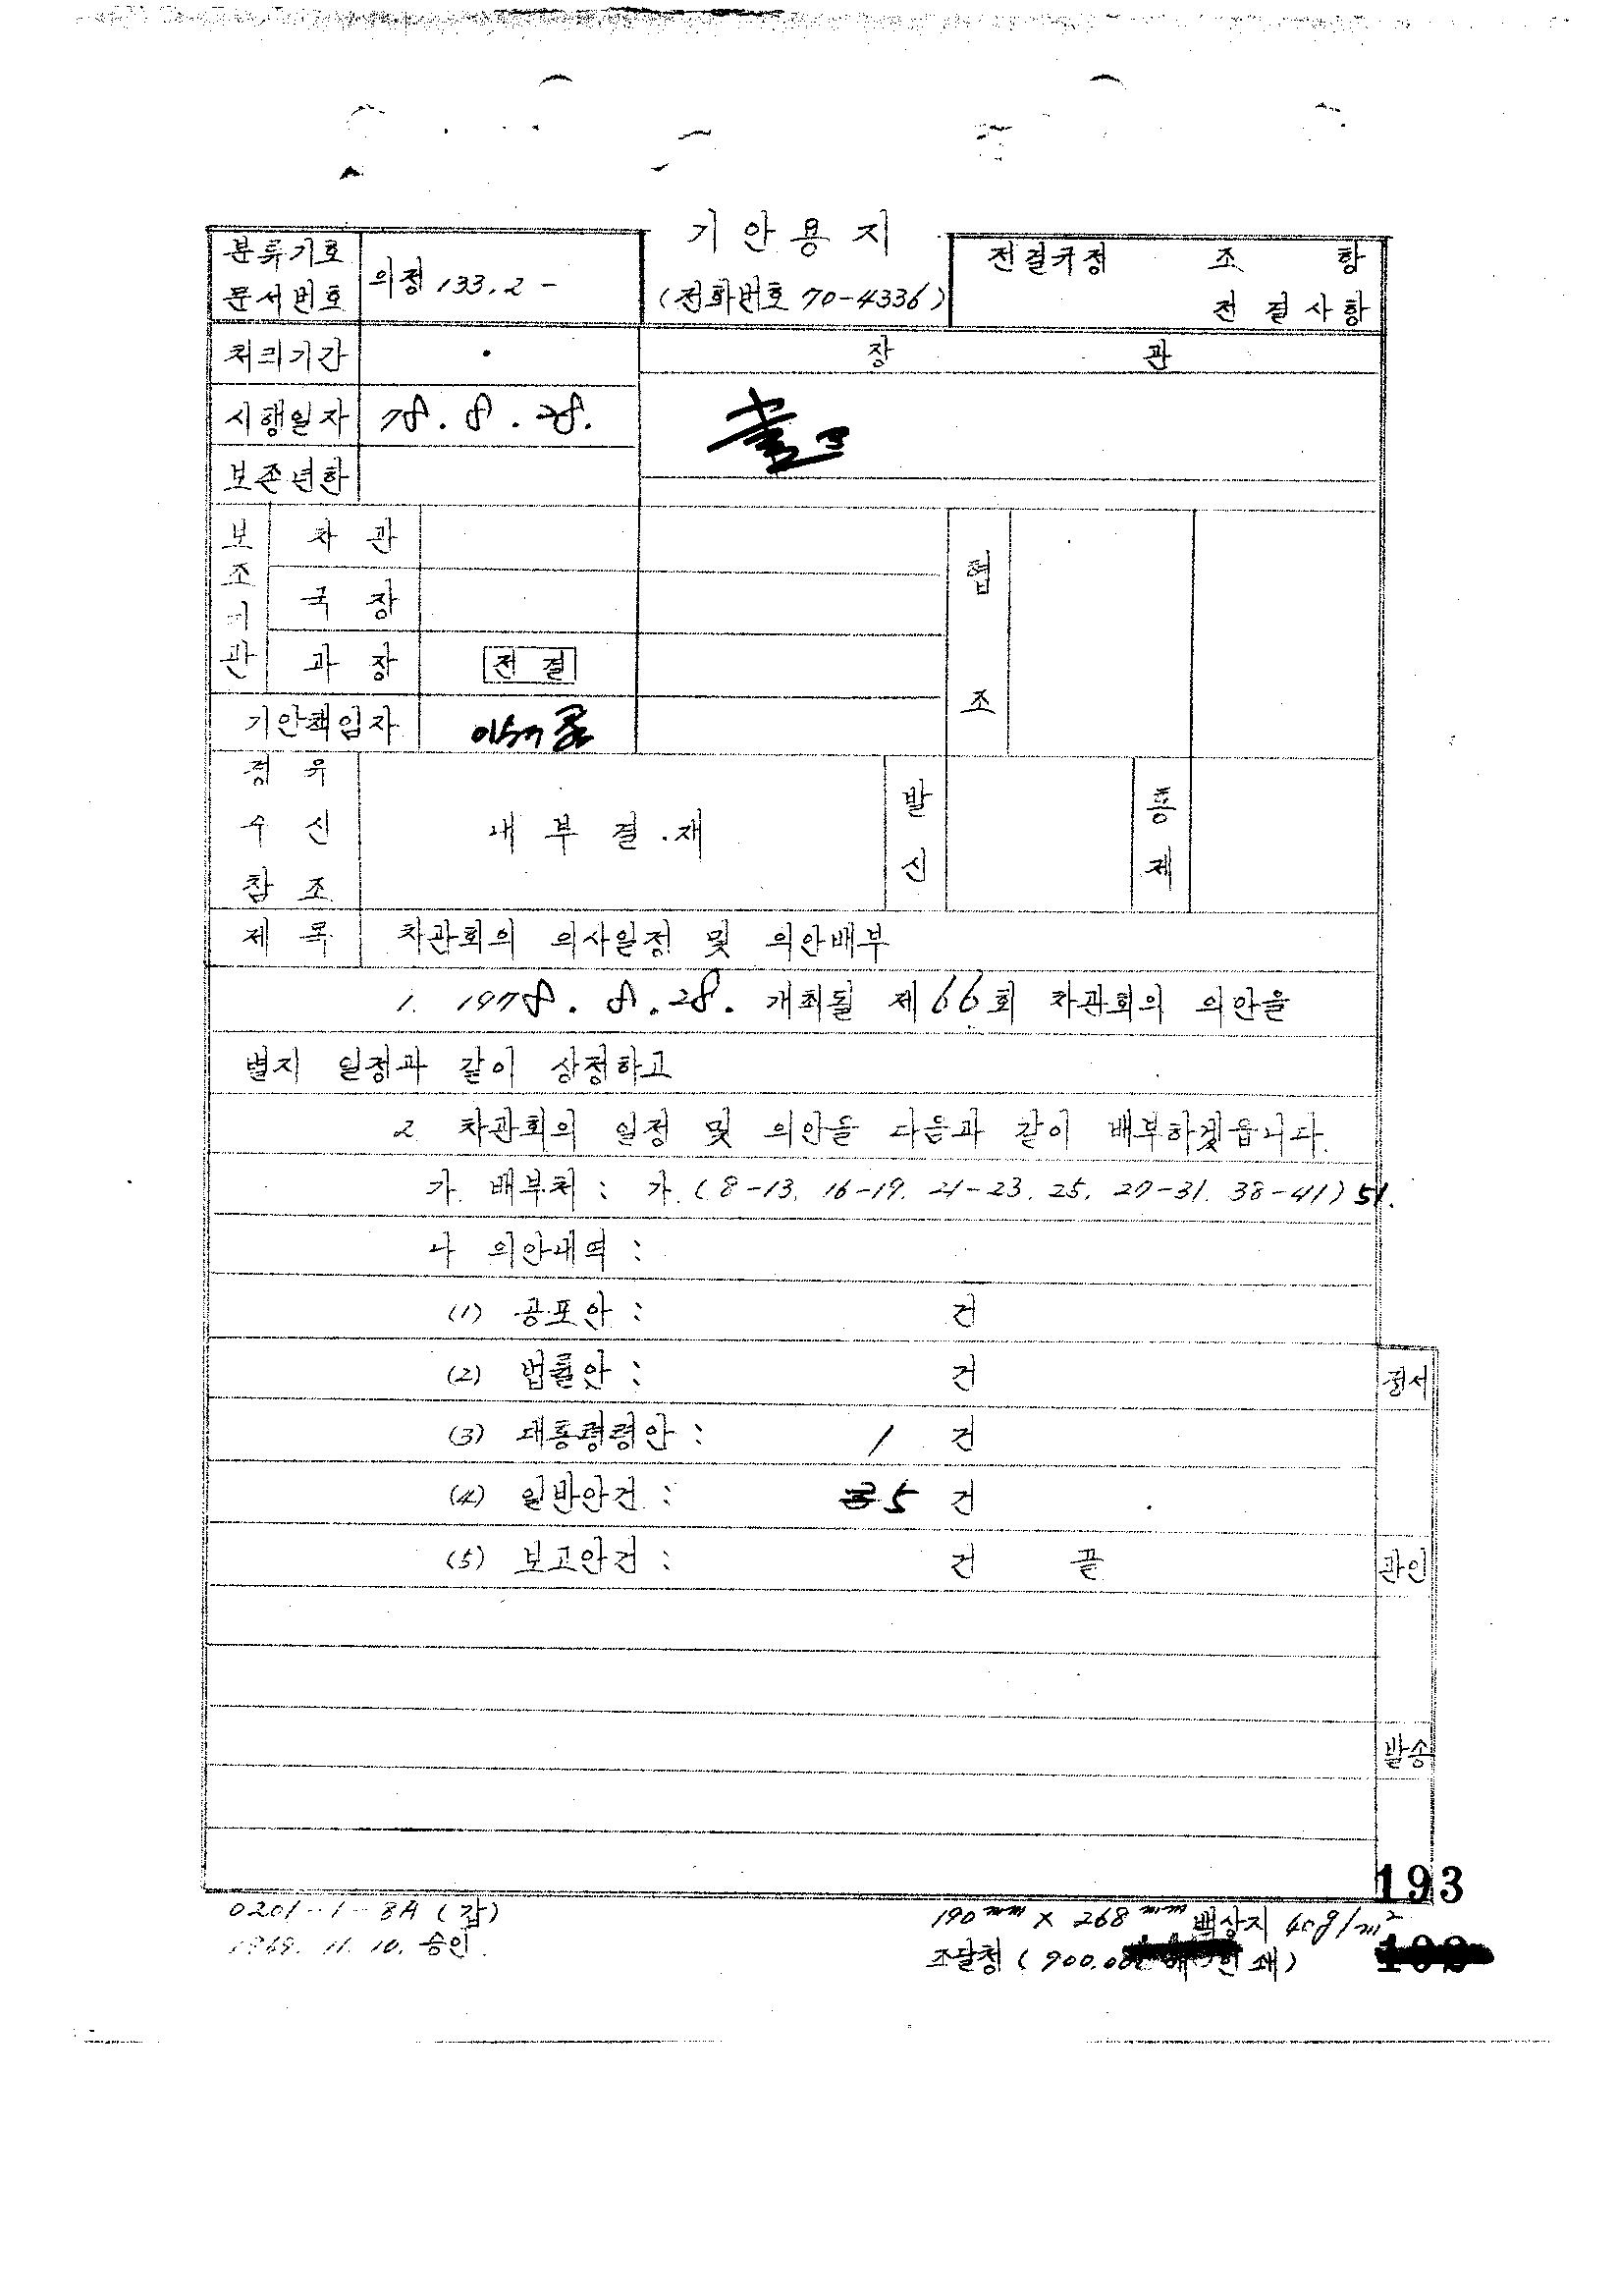 기 안 용 지
분류기호
문서번호
의정 133.2 -
(전화번호 70-4336)
전결규정 조 항
전 결 사 항
처리기간
장 관
시행일자 78. 8. 28.
보존년한
보조기관
차 관
국 장
과 장 전 결
기안책임자
협 조
경 유
수 신 내 부 결 재
참 조
발 신
통 제
제 목 차관회의 의사일정 및 의안배부
1. 1978. 8. 28. 개최될 제 66 회 차관회의 의안을
별지 일정과 같이 상정하고
2. 차관회의 일정 및 의안을 다음과 같이 배부하겠읍니다.
가. 배부처 : 가. (8-13, 16-19, 21-23, 25, 27-31, 38-41) 51.
나 의안내역 :
(1) 공포안 : 건
(2) 법률안 : 건
정서
(3) 대통령령안 : 1 건
(4) 일반안건 : 5 건
(5) 보고안건 : 건 끝
관인
발송
193
0201-1-8A (갑)
1969. 11. 10. 승인
190mm x 268mm 백상지 40g/m²
조달청 (900.00 인쇄)